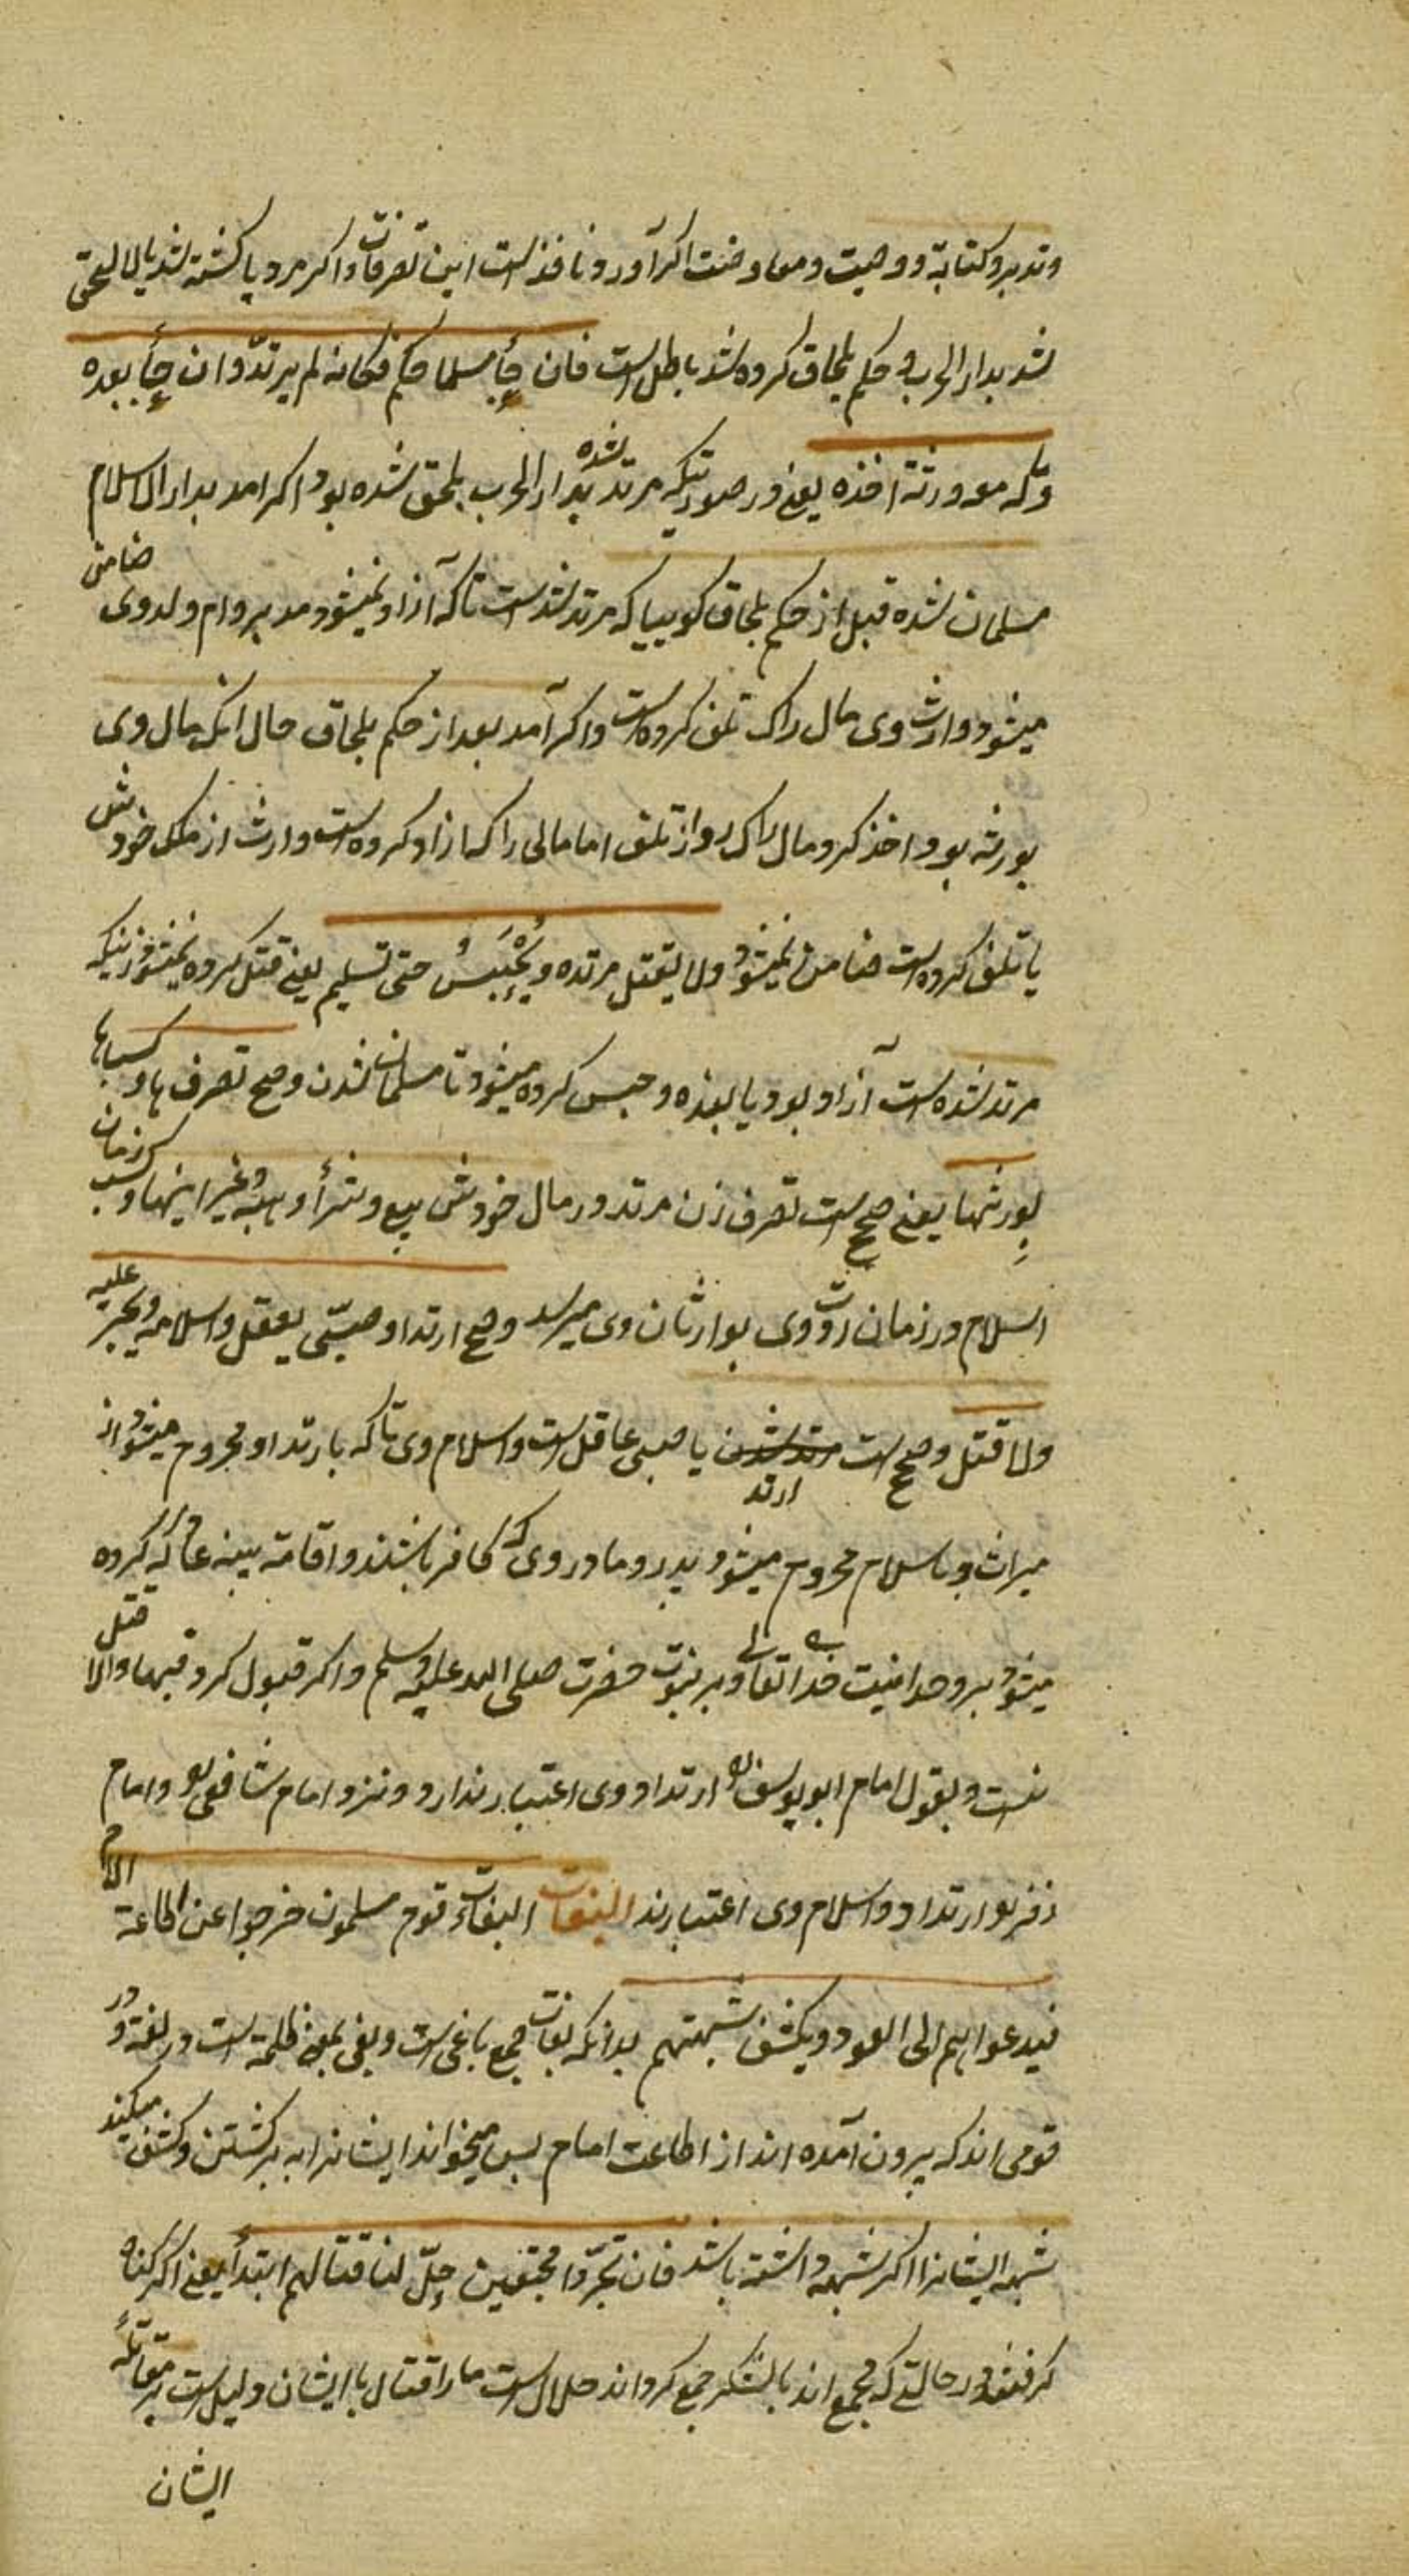 وتدبیر وکتابة ووصیت ومعاوضت اکر آورد نافذست این تصرفات واکر مرد یا کشته شد یا لاحق
شد بدار الحرب و حکم بلحاق کرده شد باطل است فان جأ مسلما حکم فکانه لم یرتدّ وان جأ بعده
وماله مع ورثته اخذه یعنے در صورتیکه مرتد شده بدار الحرب ملحق شده بود اکر امد بدار الاسلام
مسلمان شده قبل از حکم بلحاق کوییا که مرتد نشدست تا که آزاد نمیشود مدبر وام ولد وی ضامن
میشود وارث وی مال را که تلف کرده است واکر آمد بعد از حکم بلحاق حال انکه مال وی
بورثه بود اخذ کرد مال را که بود از تلف اما مالی را که ازاد کرده است وارث از ملک خودش
یا تلف کرده است ضامن نمیشود ولا یقتل مرتده ویُحْبَسُ حتی تسلیم یعنے قتل کرده نمیشود زنیکه
مرتد شده است آزاد بود یا بنده و حبس کرده میشود تا مسلمان شدن وصح تصرف ها وکسبها
لورثتها یعنے صحیح است تصرف زن مرتد در مال خودش ببیع وشرأ وهبه وغیر اینها وکسب زمان
اسلام ودر زمان ردّت وی بوارثان وی میرسد وصح ارتداد صبیّی یعقل واسلامه ویجبر علیه
ولا قتل وصحیح است ارتد یا صبی عاقل است واسلام وی تا که بارتداد محروم میشود از
میراث وباسلام محروم میشود پدر ومادر وی که کافر باشند واقامة بینه کرده
میشود بر وحدانیت خدای تعالی وبر نبوت حضرت صلی الله علیه وسلم واکر قبول کرد فبها والا قتل
نیست وبقول امام ابو یوسف ره ارتداد وی اعتبار ندارد ونزد امام شافعی ره وامام
زفر ره ارتداد واسلام وی اعتبار ند البغات البغات قوم مسلمون خرجوا عن اطاعة الامام
فیدعواهم الی العود ویکشف شبهتهم بدانکه بغات جمع باغی است وبغی بمعنے ظلمة است در لغة ودر
قومی اند که بیرون آمده اند از اطاعت امام بس میخواند ایشانرا به برکشتن وکشف میکند
شبهه ایشانرا اکر شبهه داشته باشد فان تجرّوا مجتمعین حلّ لنا قتالهم ابتدأ یعنے اکر کناه
کرفتند در حالتے که مجمع اند یا لشکر جمع کرده اند حلال است ما را قتال با ایشان دلیل است بر مقاتلهٔ
ایشان